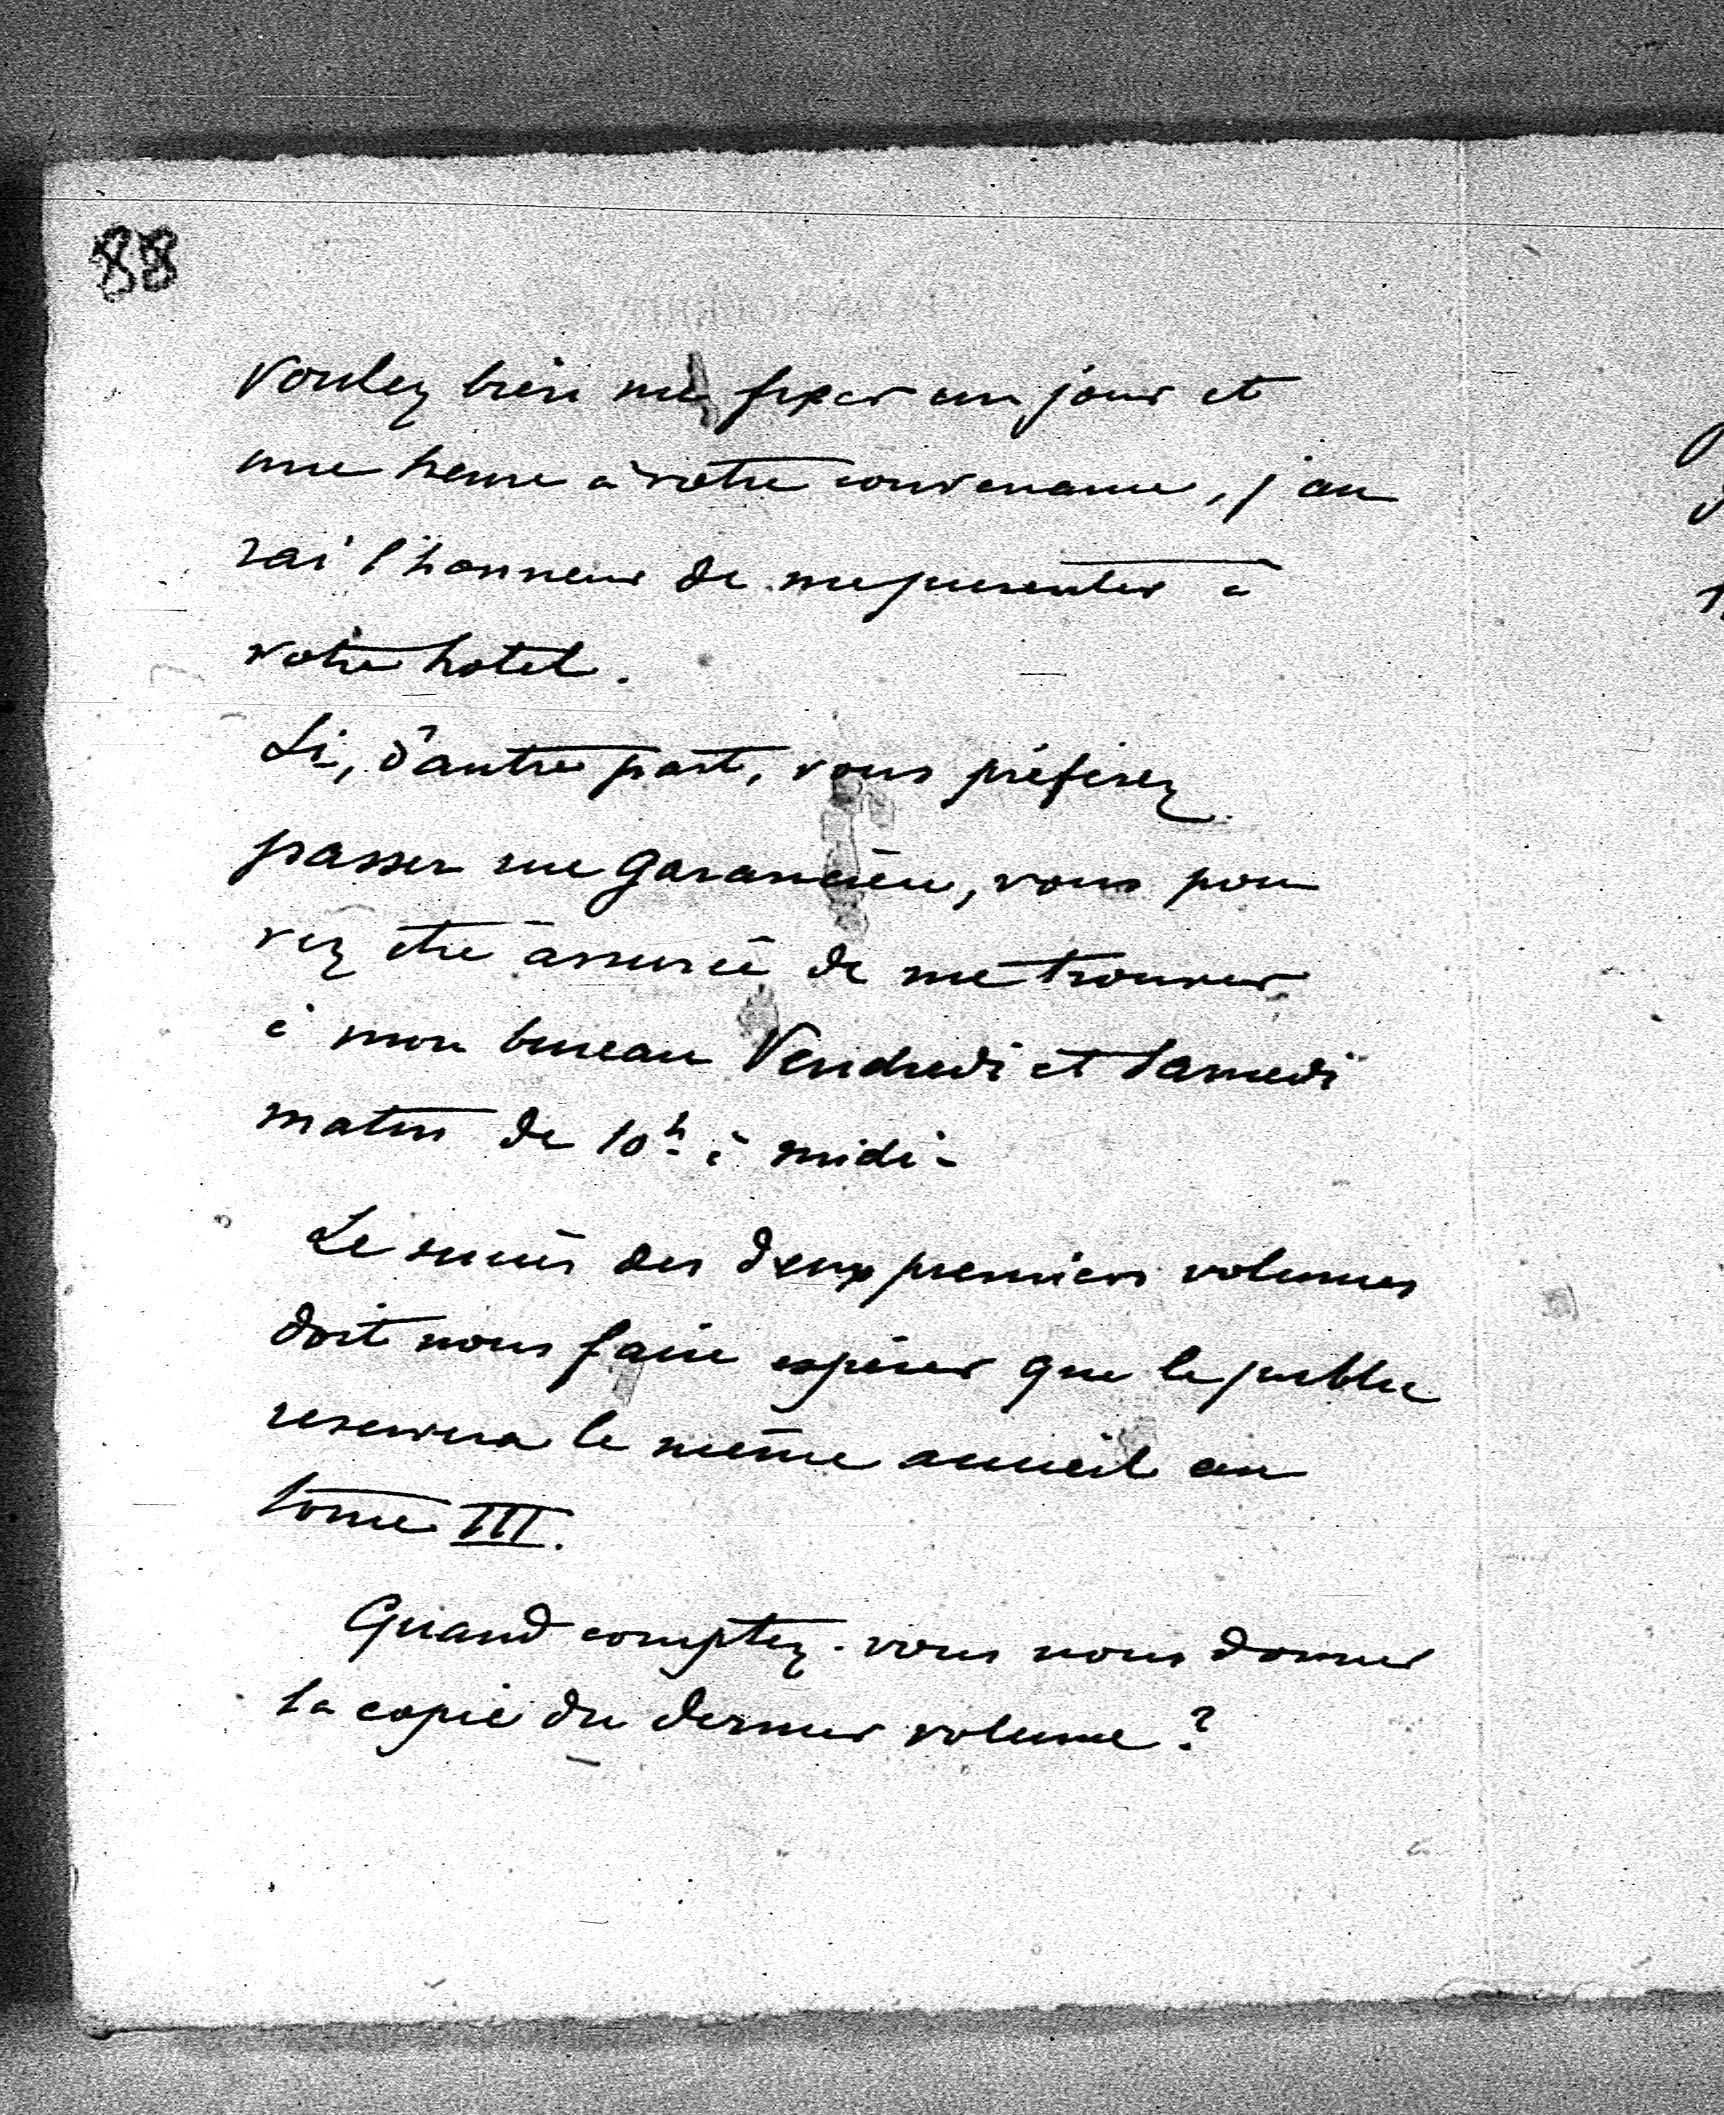 88
voulez bien me fixer un jour et
une heure à votre convenance, j'au
rai l'honneur de me presenter à
votre hotel.
Si, d'autre part, vous préferez
passer rue Garancière, vous pou
vez être assurée de me trouver
à mon bureau Vendredi et Samedi
matin de 10h à midi.
Le succès des deux premiers volumes
doit nous faire espérer que le public
reservera le même accueil au
tome III.
Quand comptez-vous nous donner
la copie du dernier volume ?